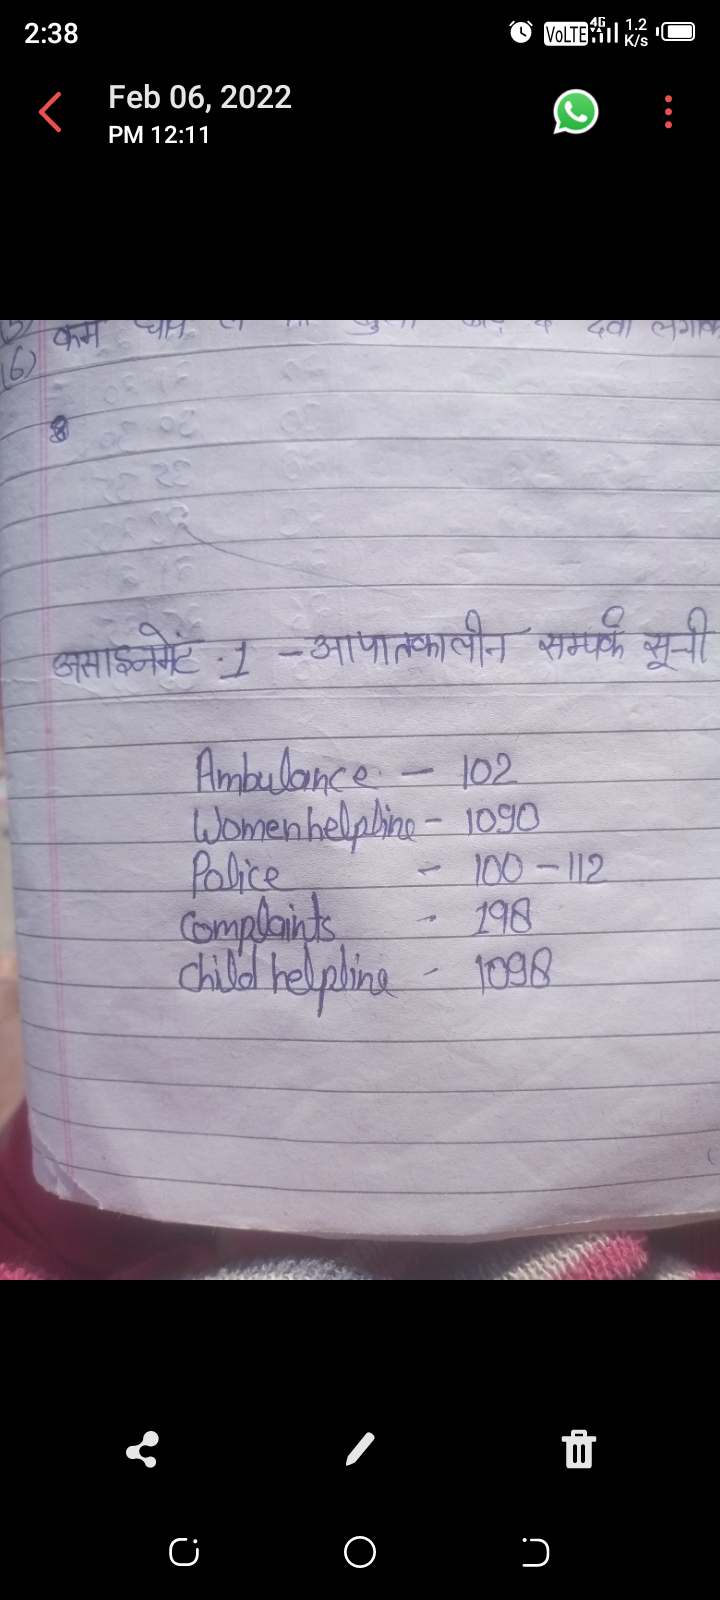 2:38 VoLTE 4G 1.2 K/s
Feb 06, 2022
PM 12:11
कम दवा
(6)
असाइनमेंट .1 - आपातकालीन सम्पर्क सूची
Ambulance - 102
Womenhelpline - 1090
Police - 100 - 112
Complaints - 198
Child helpline - 1098